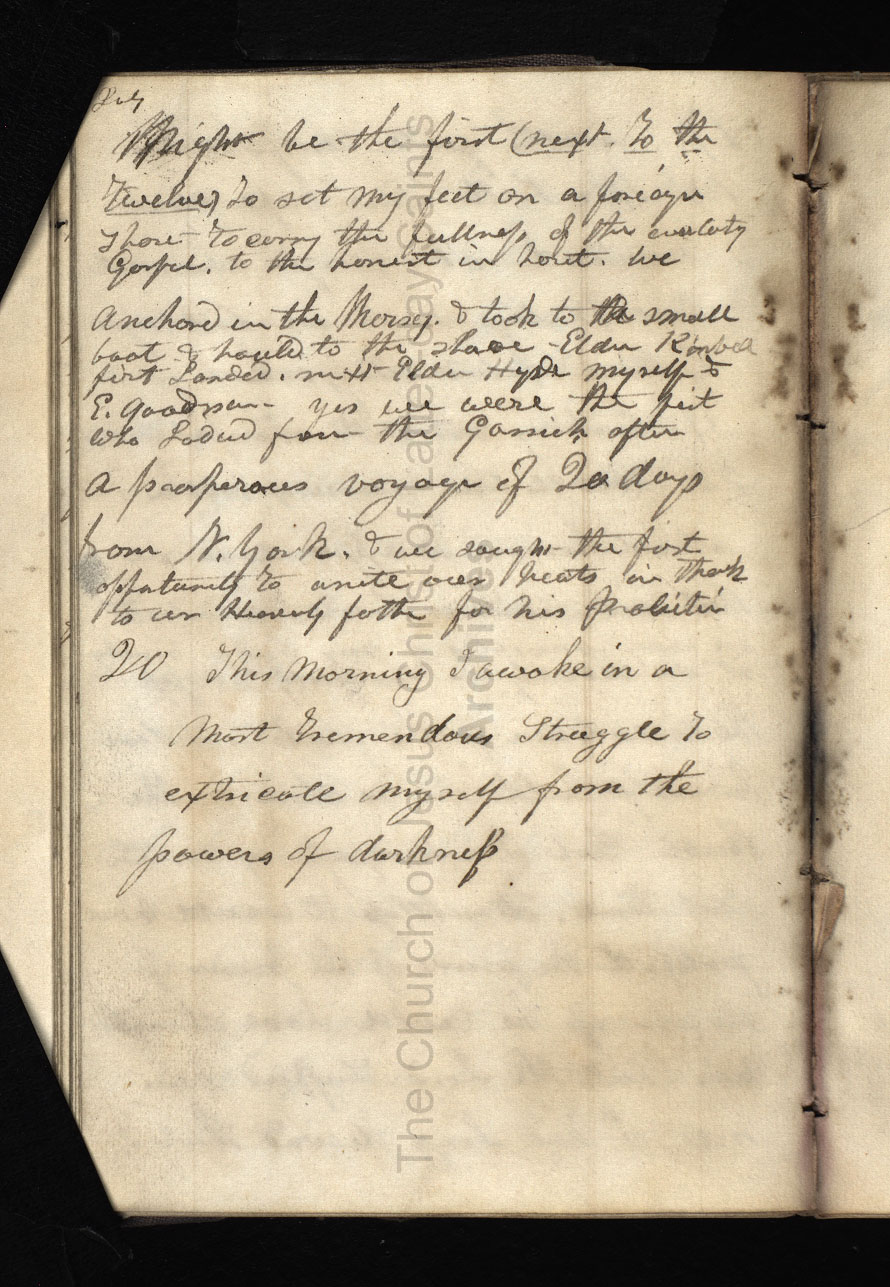 Might be the first (next. To the
Twelve) to set my feet on a foreign
shore to carry the fullness of the
Gospel. to the honest in heart. we
Anchord in the Mersy. & took to the small
boat & to the shore - Elder Kimball
first Landed. next Elder Hyde myself &
E. Goodson - yes we were the first
who from the Garrick after
a prosperous voyage of 20 days
from N. York. & we sought the first
oppertunity to unite our hearts in thank
to our Heavenly father for his
20 This Morning I awoke in a
Most Tremendous Struggle to
extricate myself from the
powers of darkness
The Church of Jesus Christ of Latter-day Saints
Archives